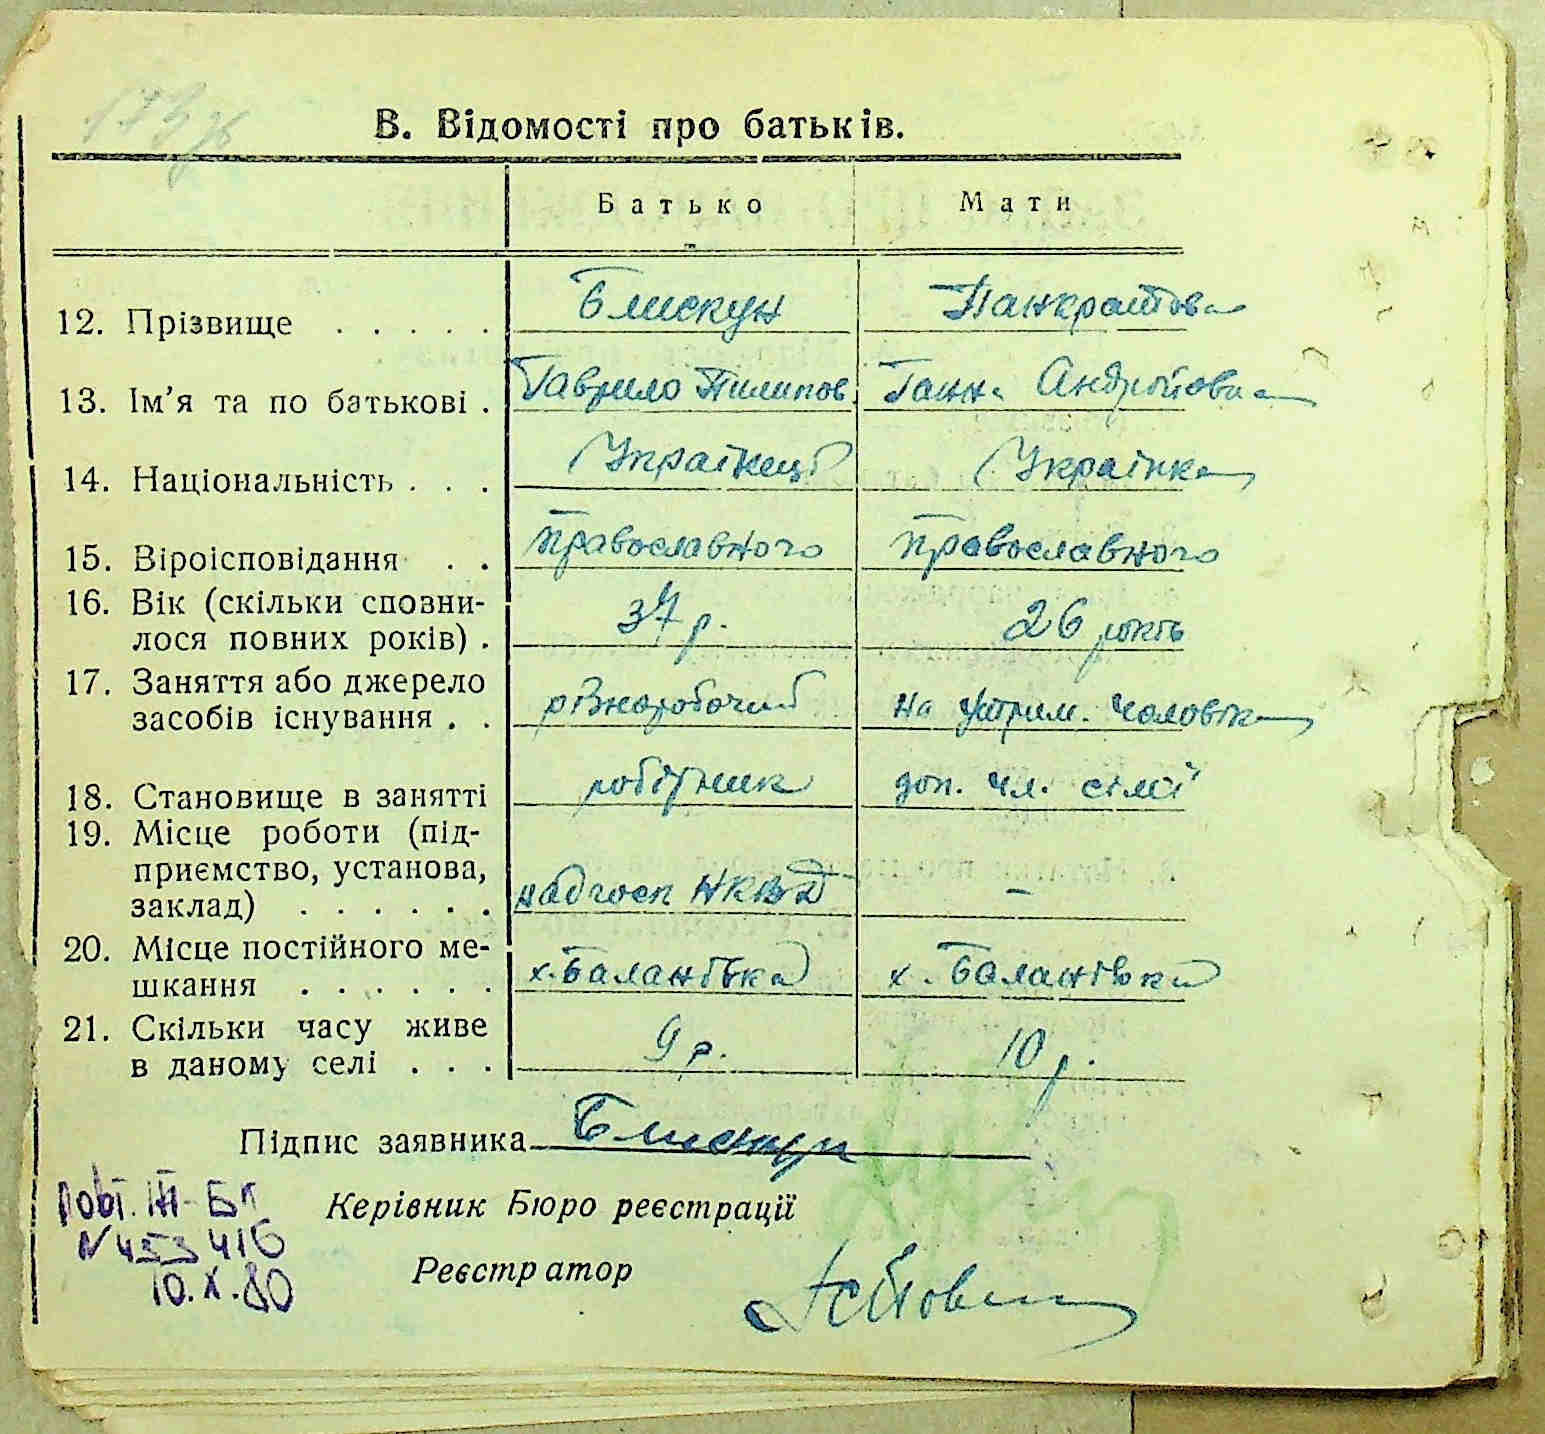 В. Відомості про батьків.
Батько Мати
12. Прізвище . . . . . Блискун Панкратова
13. Ім'я та по батькові . Гаврило Пилипов. Ганна Андріївна
14. Національність . . . Українець Українка
15. Віроісповідання . . Православного Православного
16. Вік (скільки сповни-
лося повних років) . 37 р. 26 років
17. Заняття або джерело
засобів існування . . різноробочий на утрим. чоловіка
18. Становище в занятті робітник доп. чл. сімї
19. Місце роботи (під-
приємство, установа,
заклад) . . . . . . радгосп НКВД –
20. Місце постійного ме-
шкання . . . . . . х. Баланівка х. Баланівка
21. Скільки часу живе
в даному селі . . . 9 р. 10 р.
Підпис заявника Блискун
Керівник Бюро реєстрації
Реєстратор
Повт. III-БК
N 453416
10.X.80